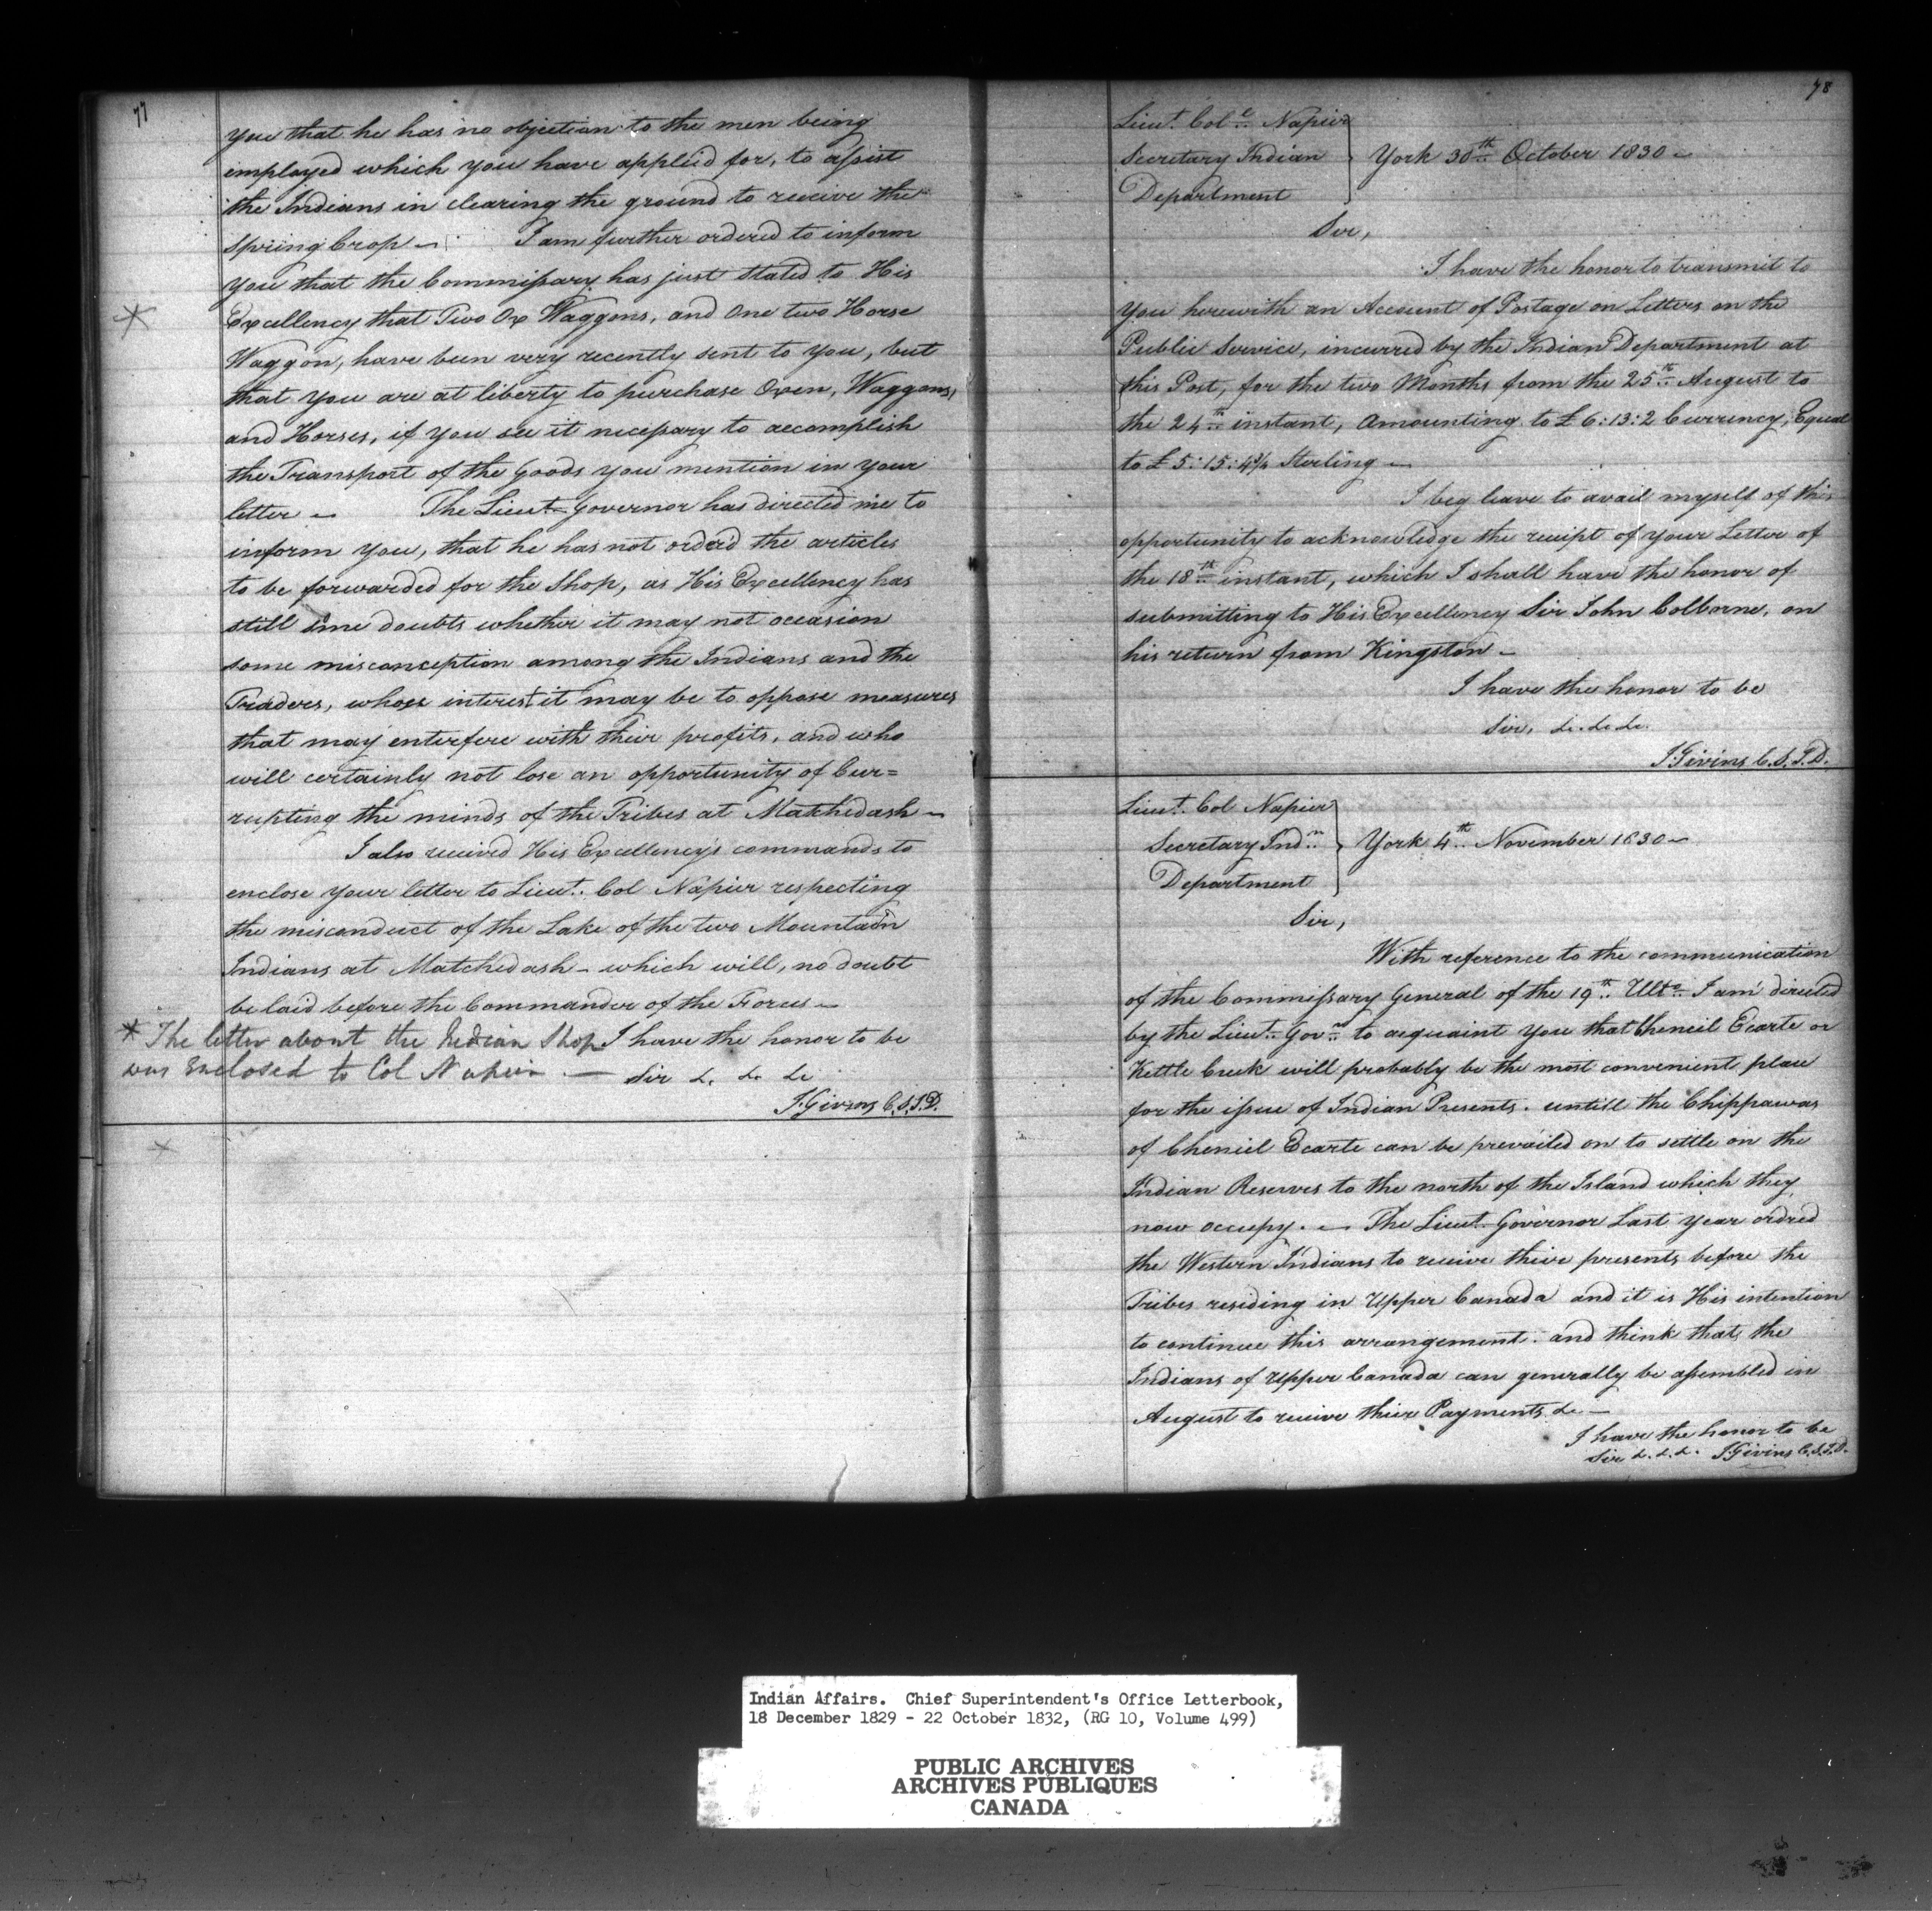 77
you that he has no objection to the men being
employed which you have applied for, to assist
the Indians in clearing the ground to receive the
Spring Crop — I am further ordered to inform
you that the Commissary has just stated to His
Excellency that Two Ox Waggons, and One two Horse
Waggon, have been very recently sent to you, but
that you are at liberty to purchase Oxen, Waggons,
and Horses, if you see it nicessary to accomplish
the Transport of the Goods you mention in your
letter — The Lieut Governor has directed me to
inform you, that he has not orderd the articles
to be forwarded for the Shop, as His Excellency has
still some doubts whether it may not occasion
some misconception among the Indians and the
Traders, whose interest it may be to oppose measures
that may enterfere with their profits, and who
will certainly not lose an opportunity of Cur=
rupting the minds of the Tribes at Matchedash —
I also received His Excellency's commands to
enclose your letter to Lieut. Col Napier respecting
the misconduct of the Lake of the two Mountain
Indians at Matchedash — which will, no doubt
be laid before the Commander of the Forces —
* The letter about the Indian Shop
was Enclosed to Col Napier —
I have the honor to be
Sir &. &. &c
J. Givins C.S.I.D.
78
Lieut. Col. Napier
Secretary Indian
Department
York 30th October 1830 —
Sir,
I have the honor to transmit to
you herewith an Account of Postage on Letters on the
Public Service, incurred by the Indian Department at
this Post, for the two Months from the 25th August to
the 24th instant, Amounting to £6:13:2 Currency, Equal
to £5:15:4¾ Sterling —
I beg leave to avail myself of this
opportunity to acknowledge the receipt of your Letter of
the 18th instant, which I shall have the honor of
submitting to His Excellency Sir John Colborne, on
his return from Kingston —
I have the honor to be
Sir, &c. &c &c.
J. Givins C.S.I.D.
Lieut. Col Napier
Secretary Indn
Department
York 4th November 1830 —
Sir,
With reference to the communication
of the Commissary General of the 19th Ulto I am directed
by the Lieut. Govnr to acquaint you that Cheneil Ecarte or
Kettle Creek will probably be the most convenient place
for the issue of Indian Presents. untill the Chippawas
of Cheneil Ecarte can be prevailed on to settle on the
Indian Reserves to the north of the Island which they
now occupy. — The Lieut Governor Last year ordred
the Western Indians to receive thire presents before the
Tribes residing in Upper Canada and it is His intention
to continue this arrangement. and think that the
Indians of Upper Canada can generally be assembled in
August to receive thier Payments &c —
I have the honor to be
Sir &. &. &. J. Givins C.S.I.D.
Indian Affairs. Chief Superintendent's Office Letterbook,
18 December 1829 - 22 October 1832, (RG 10, Volume 499)
PUBLIC ARCHIVES
ARCHIVES PUBLIQUES
CANADA